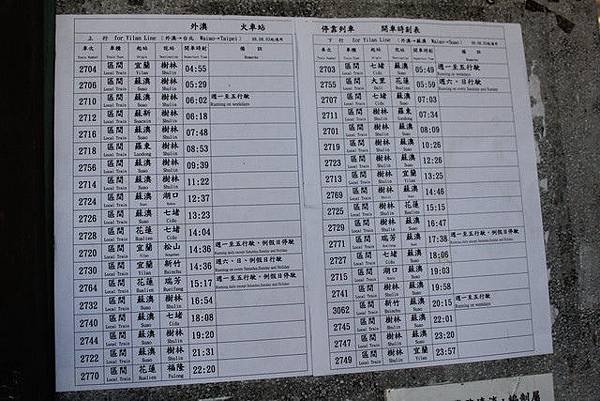 外澳 火車站
上 行 for Yilan Line (外澳→台北 Waiao→Taipei)
車次 車種 起站 訖站 開車時刻 備 註
Train Number Train Type Origin Destination Remarks
2704 區間 宜蘭 樹林 04:55
Local Train Yilan Shulin
2706 區間 蘇澳 樹林 05:29
Local Train Suao Shulin
2710 區間 蘇澳 樹林 06:02 週一至五行駛
Local Train Suao Shulin Running on weekdays
2716 區間 蘇新 樹林 06:18
Local Train Suaosin Shulin
2712 區間 蘇澳 樹林 07:48
Local Train Suao Shulin
2718 區間 羅東 樹林 08:53
Local Train Luodong Shulin
2756 區間 蘇澳 樹林 09:39
Local Train Suao Shulin
2714 區間 蘇澳 樹林 11:22
Local Train Suao Shulin
2724 區間 蘇澳 湖口 12:37
Local Train Suao
2726 區間 蘇澳 七堵 13:23
Local Train Suao Cidu
2728 區間 花蓮 七堵 14:04
Local Train Hualien Cidu
2720 區間 宜蘭 松山 14:36 週一至五行駛、例假日停駛
Local Train Yilan
2730 區間 宜蘭 新竹 14:36 週六、日、例假日行駛
Local Train Yilan Hsinchu
2764 區間 花蓮 瑞芳 15:17 週一至五行駛、例假日停駛
Local Train Hualien Rueifang
2732 區間 蘇澳 樹林 16:54
Local Train Suao Shulin
2740 區間 蘇澳 七堵 18:08
Local Train Suao Cidu
2744 區間 蘇澳 樹林 19:20
Local Train Suao Shulin
2722 區間 蘇澳 樹林 21:31
Local Train Suao Shulin
2770 區間 花蓮 福隆 22:20
Local Train Hualien Fulong
停靠列車 開車時刻表
下 行 for Yilan Line (外澳→蘇澳 Waiao→Suao)
車次 車種 起站 訖站 開車時刻 備 註
Train Number Train Type Origin Destination Remarks
2703 區間 七堵 蘇澳 05:49 週一至五行駛
Local Train Cidu Suao Running on weekdays
2755 區間 大里 花蓮 05:59 週六、日行駛
Local Train Dali Hualien
2707 區間 七堵 蘇澳 07:03
Local Train Cidu Suao
2711 區間 樹林 羅東 07:34
Local Train Shulin Luodong
2701 區間 樹林 蘇澳 08:09
Local Train Shulin Suao
2719 區間 樹林 蘇澳 10:26
Local Train Shulin Suao
2723 區間 樹林 蘇澳 12:26
Local Train Shulin Suao
2713 區間 樹林 宜蘭 13:25
Local Train Shulin Yilan
2769 區間 樹林 蘇澳 14:46
Local Train Shulin Suao
2725 區間 樹林 花蓮 15:15
Local Train Shulin Hualien
2729 區間 樹林 蘇澳 16:45
Local Train Shulin Suao
2771 區間 瑞芳 蘇澳 17:38 週一至五行駛、例假日停駛
Local Train Rueifang Suao
2727 區間 七堵 蘇澳 18:06
Local Train Cidu Suao
2715 區間 湖口 蘇澳 19:03
Local Train Suao
2741 區間 樹林 蘇澳 19:58
Local Train Shulin Suao
3062 區間 新竹 蘇澳 20:15 週一至五行駛
Local Train Hsinchu Suao Running on weekdays
2745 區間 樹林 蘇澳 22:01
Local Train Shulin Suao
2747 區間 樹林 蘇澳 23:20
Local Train Shulin Suao
2749 區間 樹林 宜蘭 23:57
Local Train Shulin Yilan